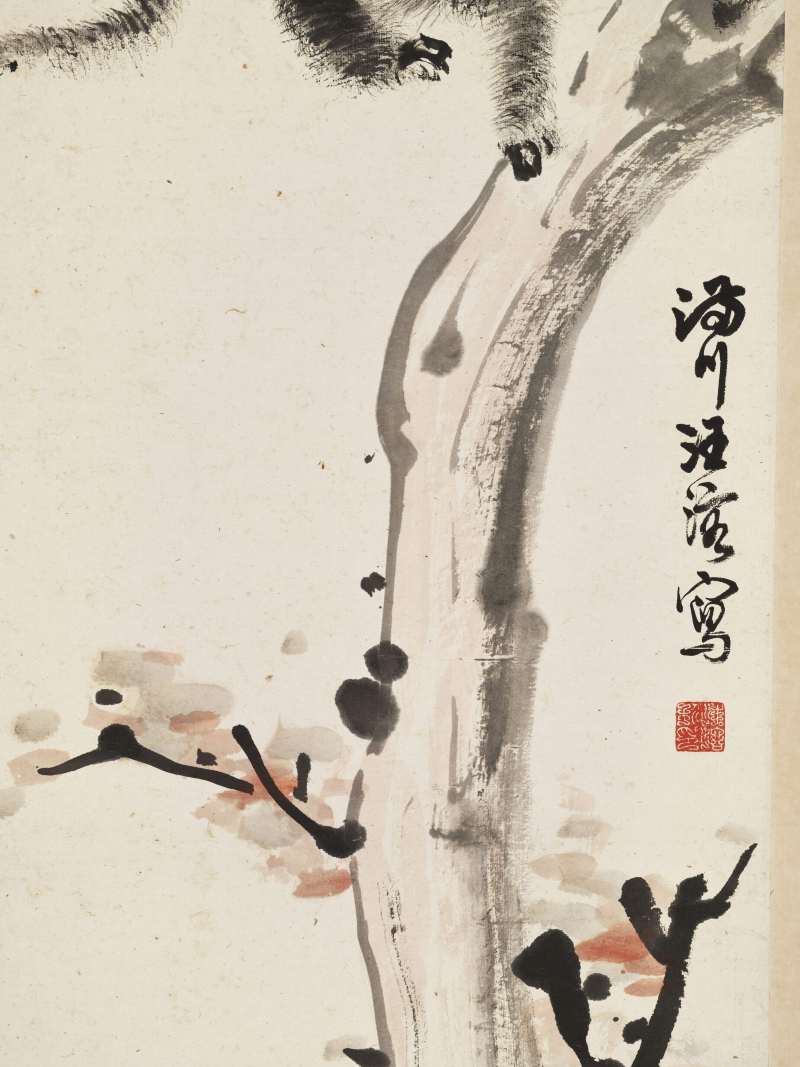 滿川汪溶寫